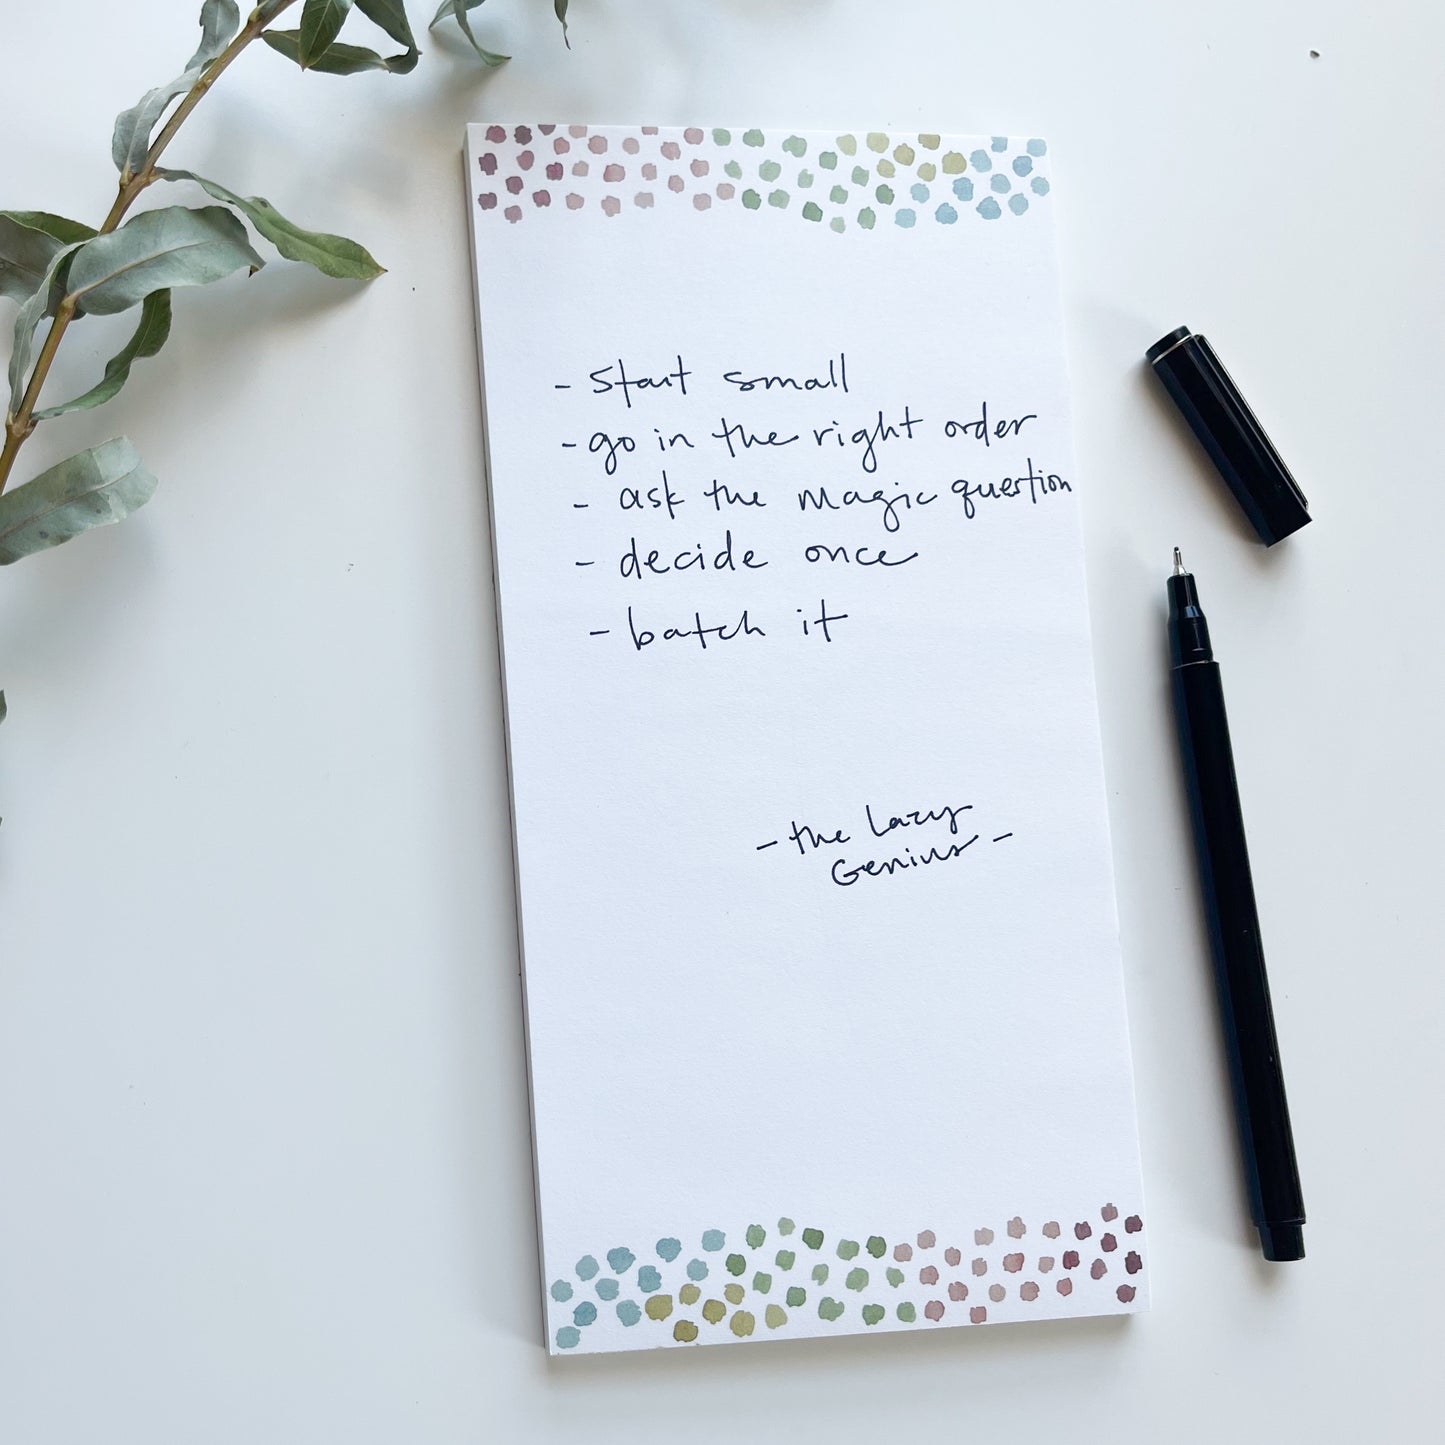 - start small
- go in the right order
- ask the magic question
- decide once
- batch it
- the Lazy
Genius -